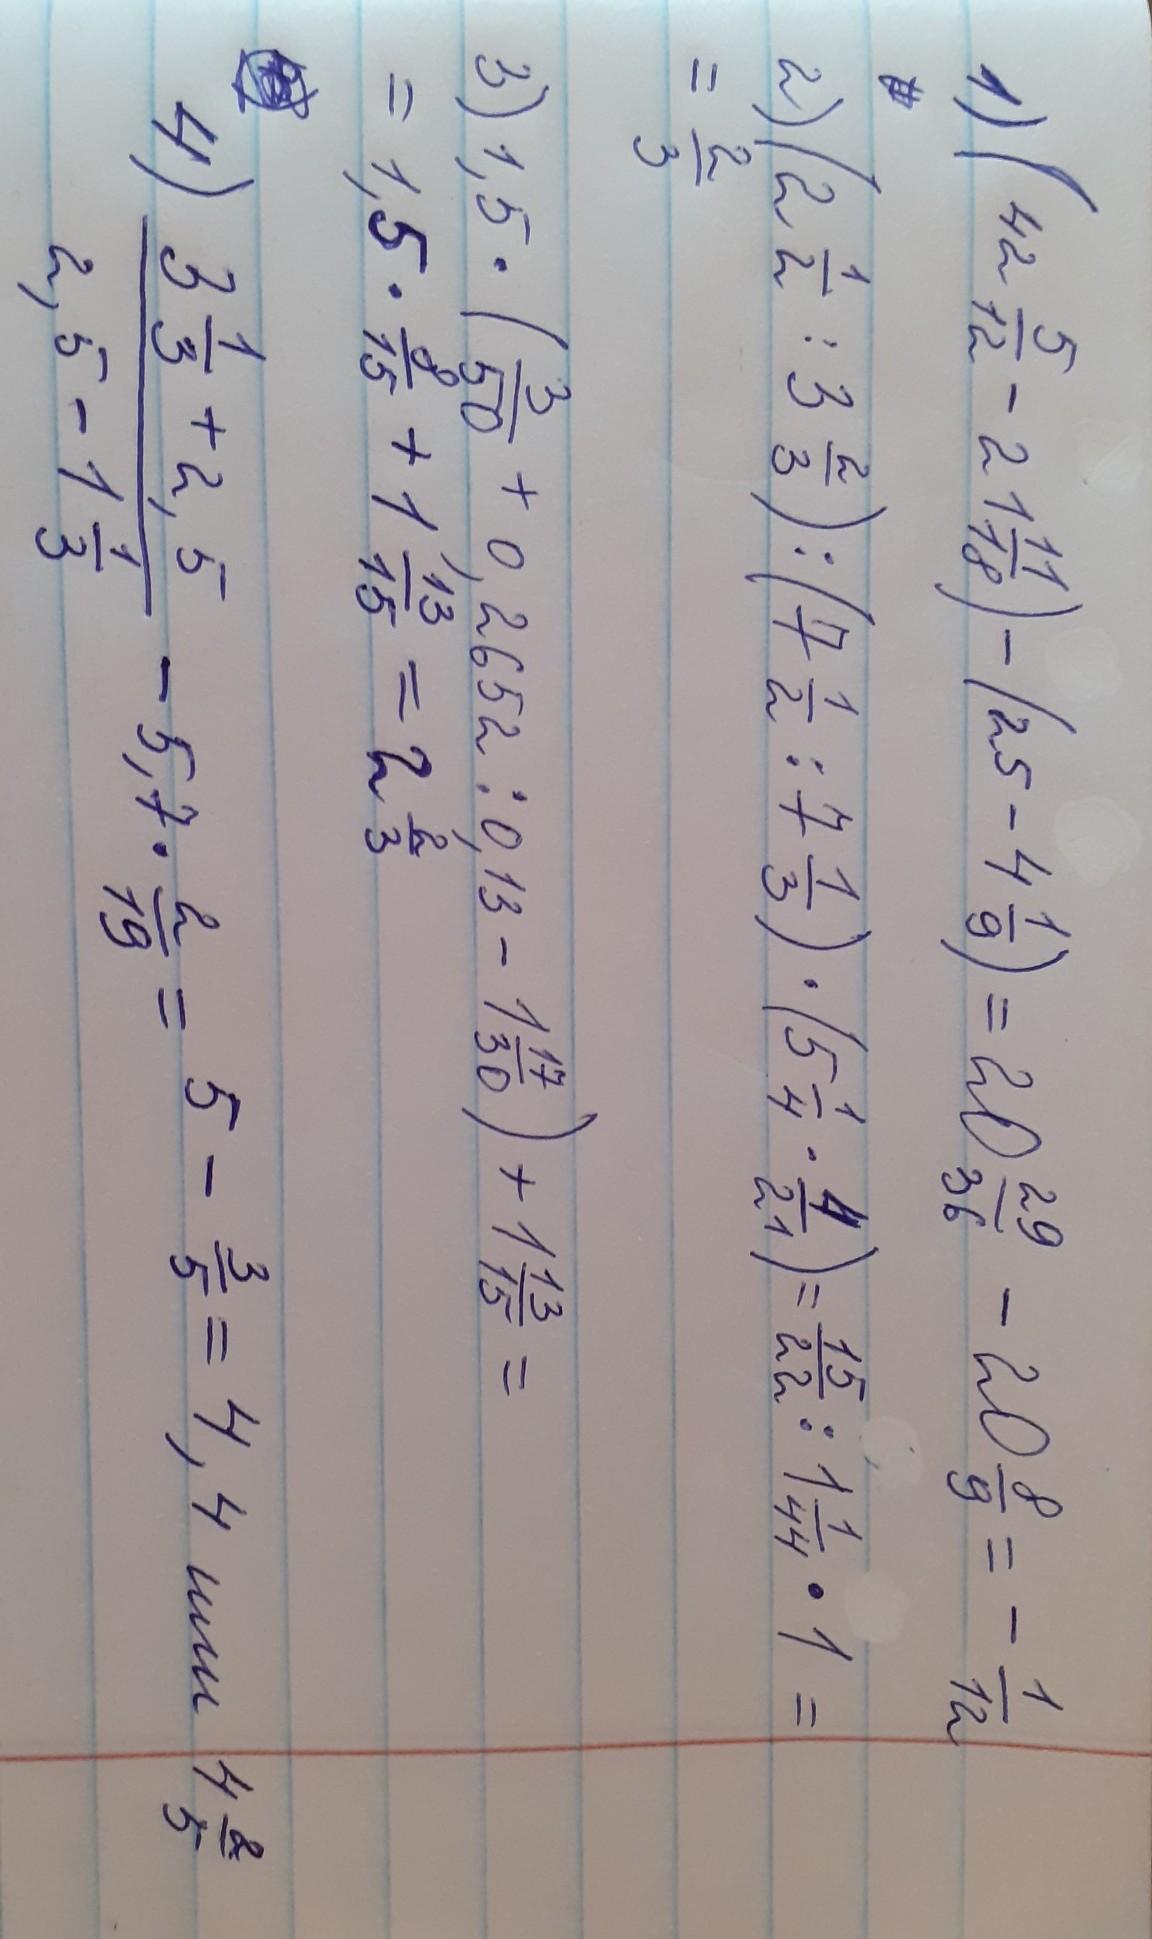 1) (42 5/12 - 21 11/18) - (25 - 4 1/9) = 20 29/36 - 20 8/9 = - 1/12
2) (2 1/2 : 3 2/3) : (7 1/2 : 7 1/3) · (5 1/4 · 4/21) = 15/22 : 1 1/44 · 1 =
= 2/3
3) 1,5 · (3/50 + 0,2652 : 0,13 - 1 17/30) + 1 13/15 =
= 1,5 · 8/15 + 1 13/15 = 2 2/3
4) (3 1/3 + 2,5)/(2,5 - 1 1/3) - 5,7 · 2/19 = 5 - 3/5 = 4,4 или 4 2/5